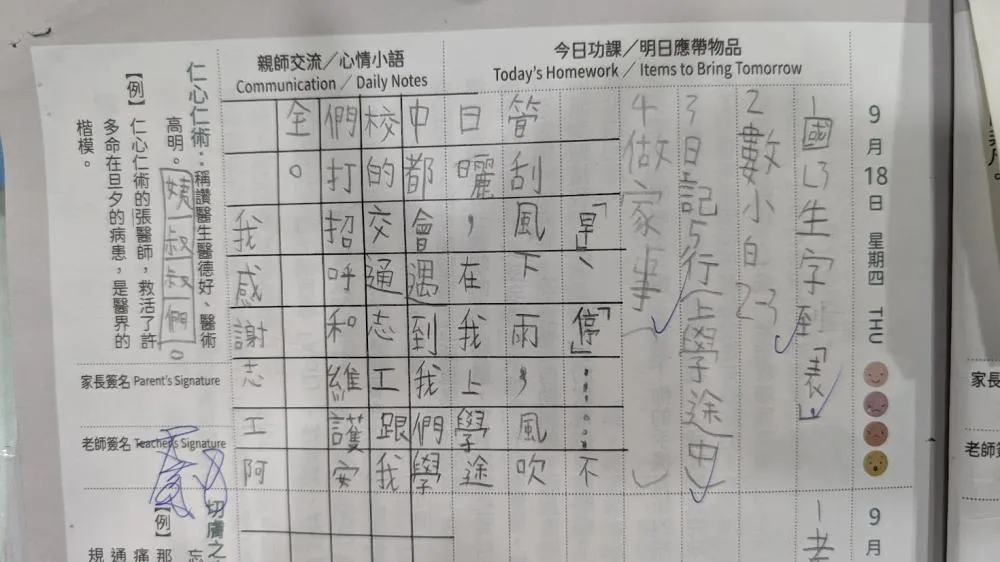 今日功課／明日應帶物品
Today's Homework / Items to Bring Tomorrow
親師交流／心情小語
Communication / Daily Notes
9月18日 星期四 THU
1國L3生字至「表」
2數小白23
3日記5行(上學途中)
4做家事
「早」、「停」……不
管刮風下雨，風吹
日曬，在我上學途
中都會遇到我們學
校的交通志工跟我
們打招呼和維護安
全。
我感謝志工阿
姨叔叔們。
仁心仁術：稱讚醫生醫德好、醫術
高明。
【例】仁心仁術的張醫師，救活了許
多命在旦夕的病患，是醫界的
楷模。
家長簽名 Parent's Signature
老師簽名 Teacher's Signature
9月
切膚之
【例】那
家長
老師簽